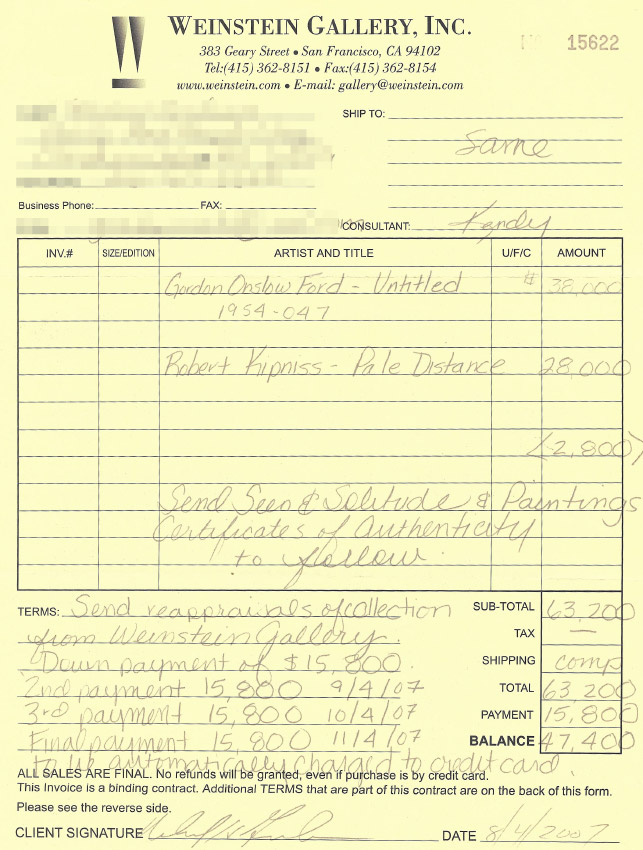 WEINSTEIN GALLERY, INC.
383 Geary Street • San Francisco, CA 94102
Tel:(415) 362-8151 • Fax:(415) 362-8154
www.weinstein.com • E-mail: gallery@weinstein.com
15622
SHIP TO:
Same
Business Phone: FAX:
CONSULTANT: Kendy
INV.# SIZE/EDITION ARTIST AND TITLE U/F/C AMOUNT
Gordon Onslow Ford - Untitled $ 38,000
1954-047
Robert Kipniss - Pale Distance 28,000
<2,800>
Send Seen & Solitude & Paintings
Certificates of Authenticity
to follow.
TERMS: Send reappraisals of collection
from Weinstein Gallery.
Down payment of $15,800.
2nd payment 15,800 9/4/07
3rd payment 15,800 10/4/07
Final payment 15,800 11/4/07
to be automatically charged to credit card.
SUB-TOTAL 63,200
TAX —
SHIPPING comp
TOTAL 63,200
PAYMENT 15,800
BALANCE 47,400
ALL SALES ARE FINAL. No refunds will be granted, even if purchase is by credit card.
This Invoice is a binding contract. Additional TERMS that are part of this contract are on the back of this form.
Please see the reverse side.
CLIENT SIGNATURE DATE 8/4/2007